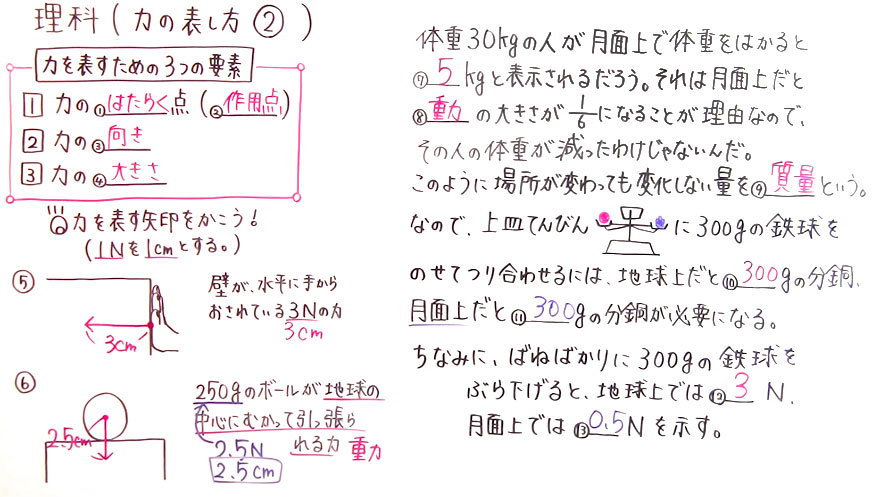 理科(力の表し方②)
力を表すための3つの要素
1 力の①はたらく点(②作用点)
2 力の③向き
3 力の④大きさ
力を表す矢印をかこう!
(1Nを1cmとする。)
⑤ 壁が、水平に手から
おされている3Nの力
3cm
3cm
⑥ 250gのボールが地球の
中心にむかって引っ張ら
れる力 重力
2.5N
2.5cm
2.5cm
体重30kgの人が月面上で体重をはかると
⑦5kgと表示されるだろう。それは月面上だと
⑧重力の大きさが1/6になることが理由なので、
その人の体重が減ったわけじゃないんだ。
このように場所が変わっても変化しない量を⑨質量という。
なので、上皿てんびんに300gの鉄球を
のせてつり合わせるには、地球上だと⑩300gの分銅、
月面上だと⑪300gの分銅が必要になる。
ちなみに、ばねばかりに300gの鉄球を
ぶら下げると、地球上では⑫3N、
月面上では⑬0.5Nを示す。